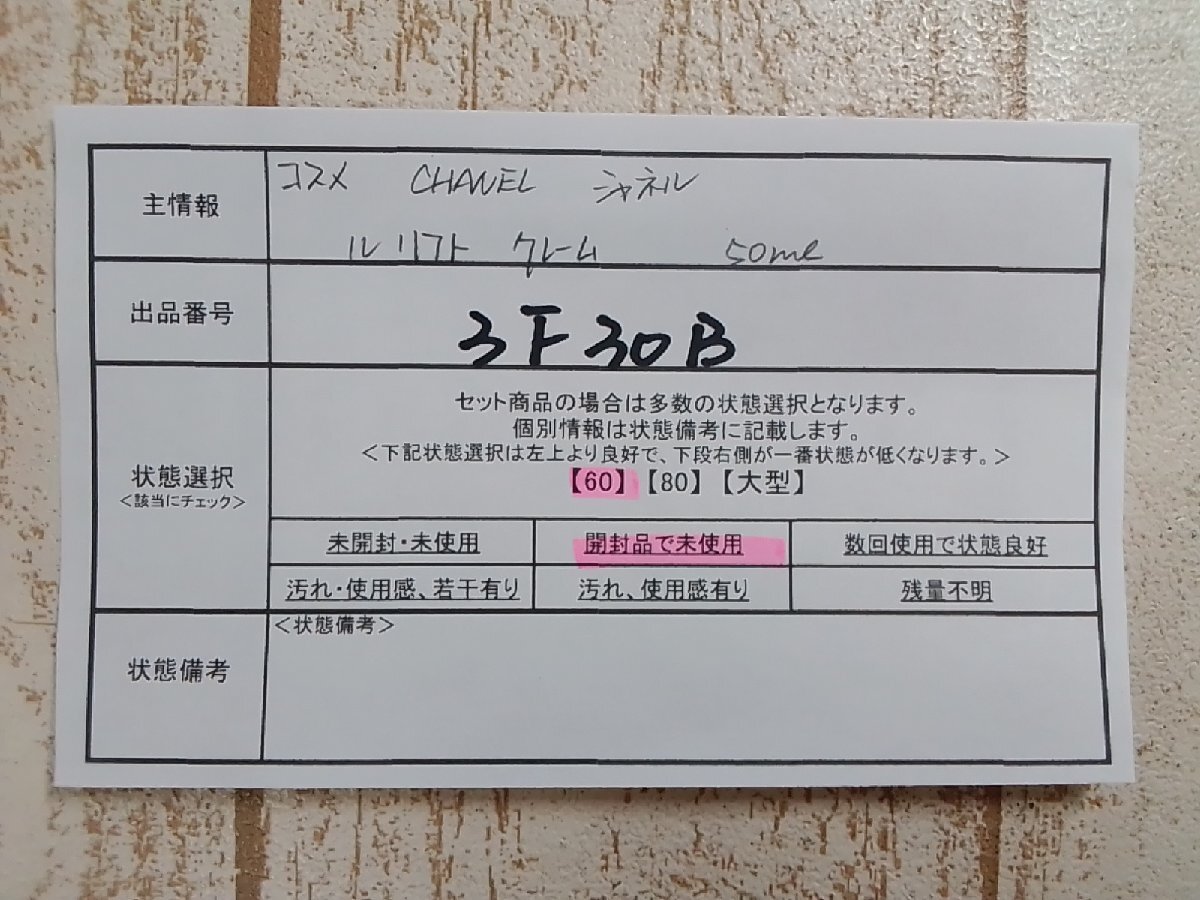 主情報
コスメ CHANEL シャネル
ル リフト クレーム 50ml
出品番号
3F30B
状態選択
<該当にチェック>
セット商品の場合は多数の状態選択となります。
個別情報は状態備考に記載します。
<下記状態選択は左上より良好で、下段右側が一番状態が低くなります。>
【60】【80】【大型】
未開封・未使用 開封品で未使用 数回使用で状態良好
汚れ・使用感、若干有り 汚れ、使用感有り 残量不明
状態備考
<状態備考>